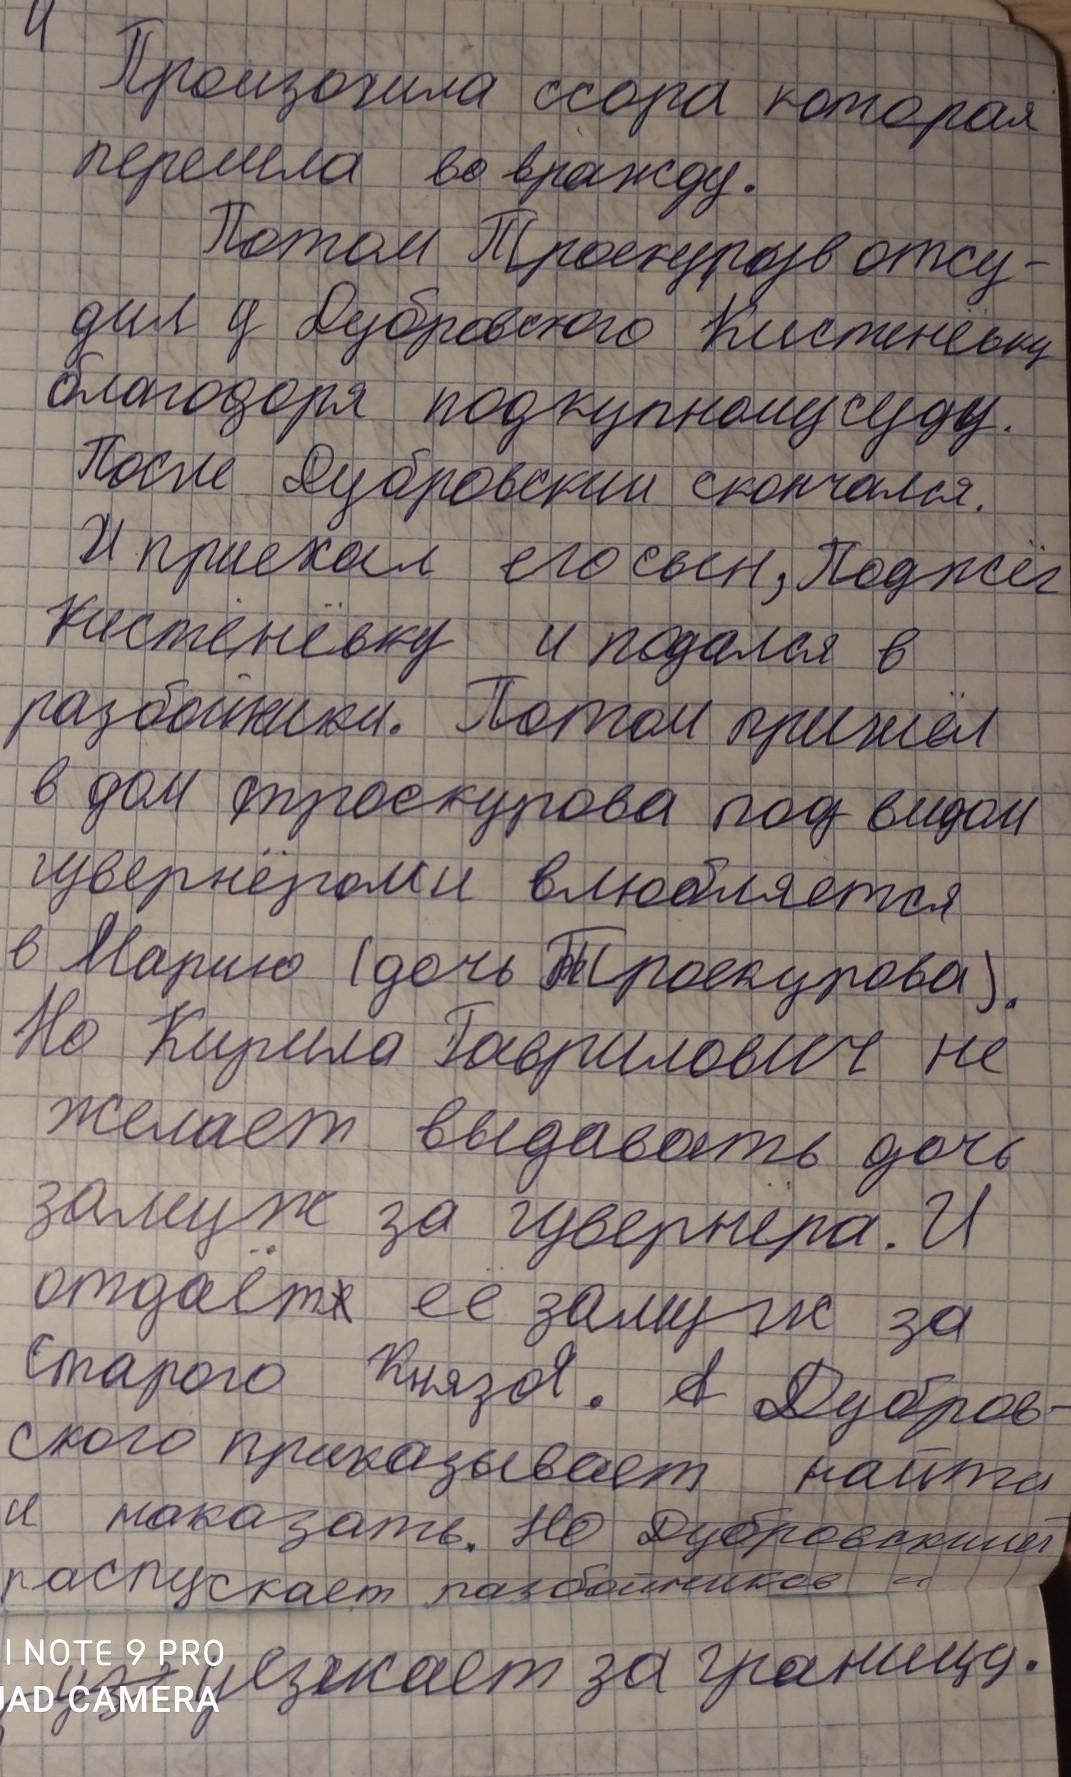 4
Произошла ссора которая
перешла во вражду.
Потом Троекуров отсу-
дил у Дубровского Кистенёвку
благодоря подкупному суду.
После Дубровский скончался.
И приехал его сын, Поджёг
Кистенёвку и подался в
разбойники. Потом пришёл
в дом троскурова под видом
гувернёром и влюбляется
в Марию (дочь Троекурова).
Но Кирила Гаврилович не
желает выдавать дочь
замуж за гувернёра. И
отдаёт её замуж за
Старого Князя. А Дубров-
ского приказывает найти
и наказать. Но Дубровский
распускает разбойников и
уезжает за границу.
I NOTE 9 PRO
UAD CAMERA